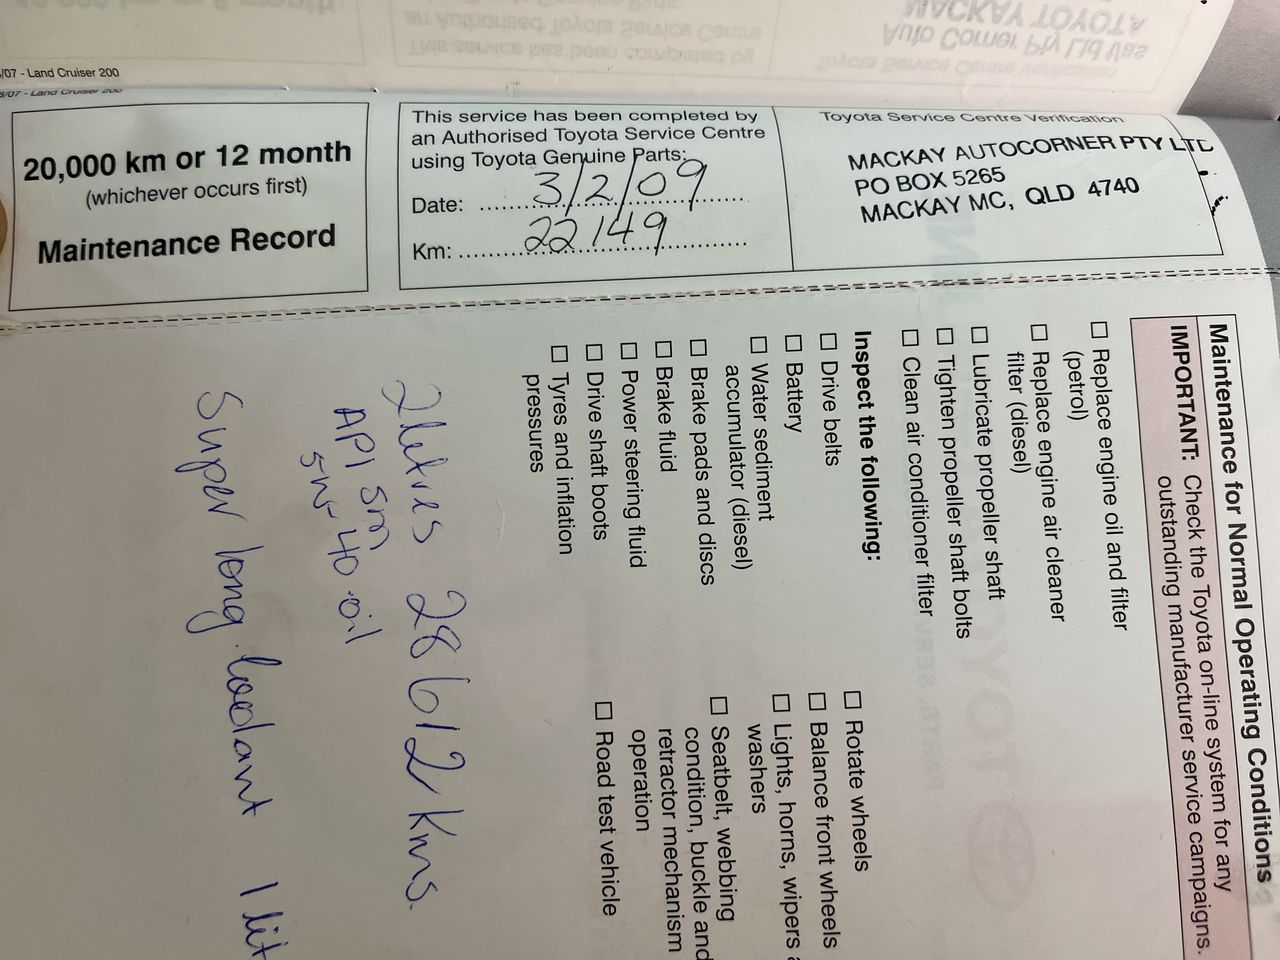 /07 - Land Cruiser 200
8/07 - Land Cruiser 200
20,000 km or 12 month
(whichever occurs first)
Maintenance Record
This service has been completed by
an Authorised Toyota Service Centre
using Toyota Genuine Parts:
Date: 3/2/09
Km: 22149
Toyota Service Centre Verification
MACKAY AUTOCORNER PTY LTD
PO BOX 5265
MACKAY MC, QLD 4740
Maintenance for Normal Operating Conditions
IMPORTANT: Check the Toyota on-line system for any
outstanding manufacturer service campaigns.
☐ Replace engine oil and filter
(petrol)
☐ Replace engine air cleaner
filter (diesel)
☐ Lubricate propeller shaft
☐ Tighten propeller shaft bolts
☐ Clean air conditioner filter
Inspect the following:
☐ Drive belts
☐ Battery
☐ Water sediment
accumulator (diesel)
☐ Brake pads and discs
☐ Brake fluid
☐ Power steering fluid
☐ Drive shaft boots
☐ Tyres and inflation
pressures
☐ Rotate wheels
☐ Balance front wheels
☐ Lights, horns, wipers
washers
☐ Seatbelt, webbing
condition, buckle and
retractor mechanism
operation
☐ Road test vehicle
2 litres 28612 Kms.
API SM
5W-40 oil
Super long coolant 1 lit
This service has been completed by
an Authorised Toyota Service Centre
Toyota Service Centre Verification
Auto Corner Pty Ltd t/as
MACKAY TOYOTA